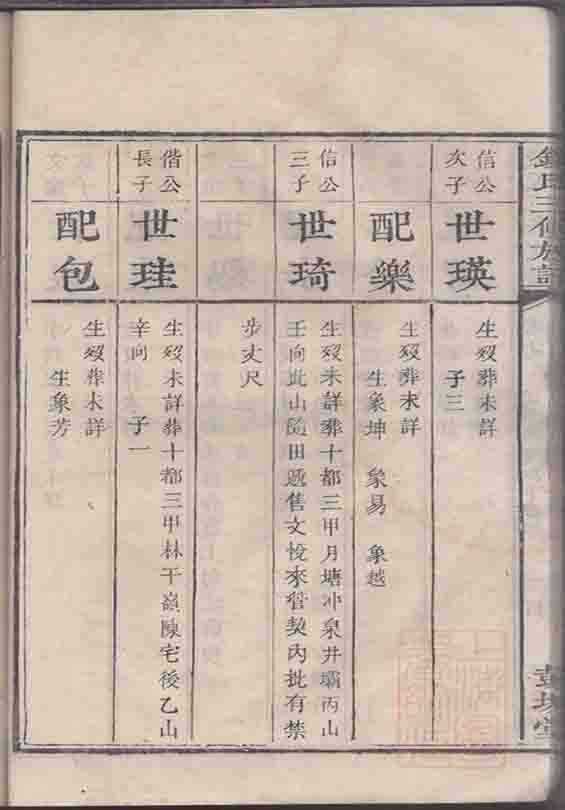 信公
次子
世瑛
生歿葬未詳
子三
配樂
生歿葬未詳
生象坤 象易 象越
信公
三子
世琦
生歿未詳葬十都三甲月塘冲泉井壩丙山
壬向此山隨田遞售文悅來管契內批有禁
步丈尺
偕公
長子
世珪
生歿未詳葬十都三甲林干嶺陳宅後乙山
辛向 子一
配包
生歿葬未詳
生象芳